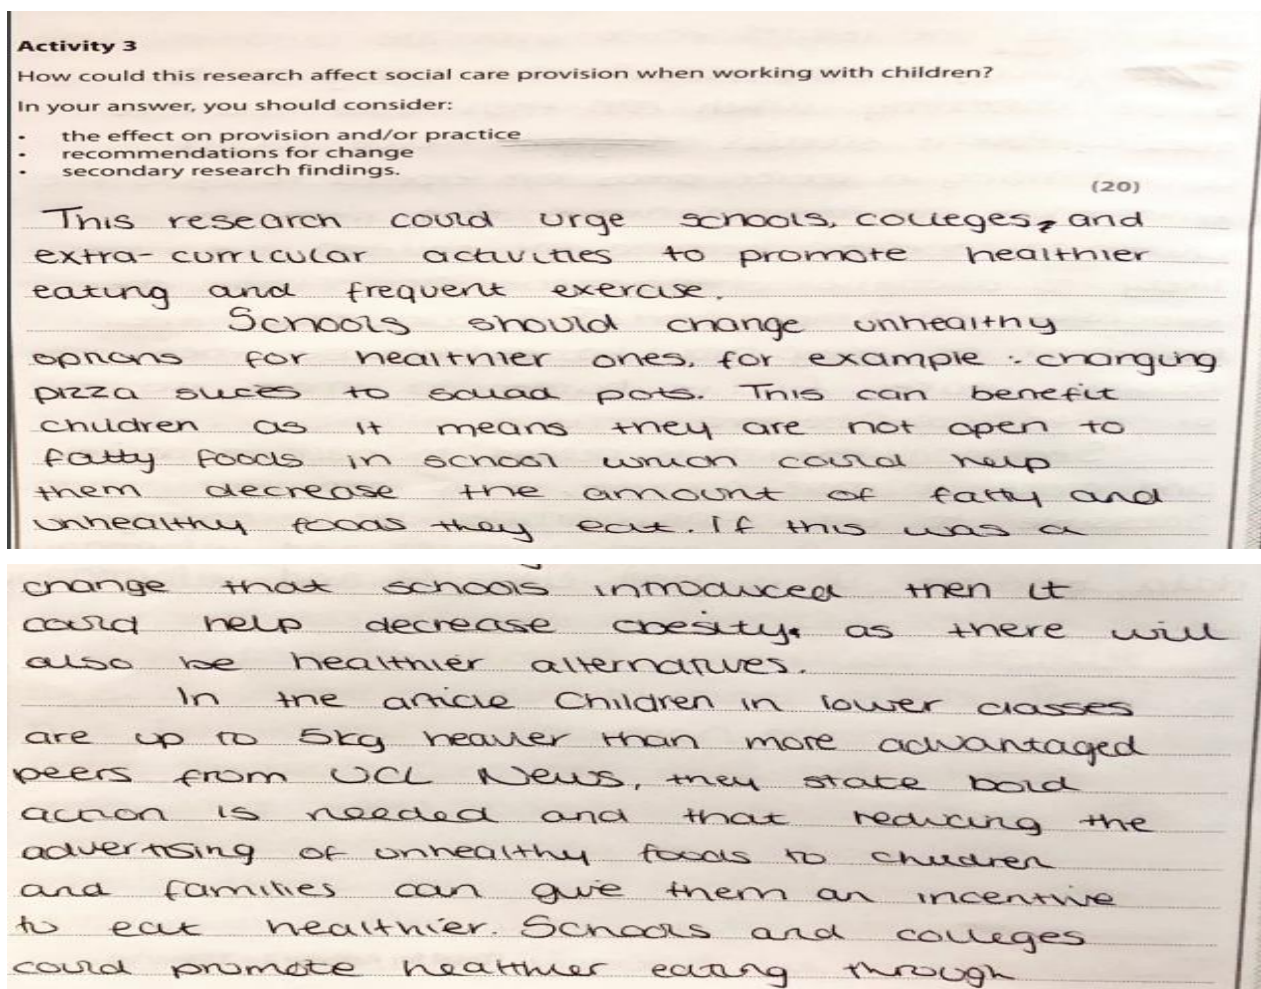 Activity 3
How could this research affect social care provision when working with children?
In your answer, you should consider:
• the effect on provision and/or practice
• recommendations for change
• secondary research findings.
(20)
This research could urge schools, colleges, and
extra-curricular activities to promote healthier
eating and frequent exercise.
Schools should change unhealthy
options for healthier ones, for example : changing
pizza slices to salad pots. This can benefit
children as it means they are not open to
fatty foods in school which could help
them decrease the amount of fatty and
unhealthy foods they eat. If this was a
change that schools introduced then it
could help decrease obesity, as there will
also be healthier alternatives.
In the article Children in lower classes
are up to 5kg heavier than more advantaged
peers from UCL News, they state bold
action is needed and that reducing the
advertising of unhealthy foods to children
and families can give them an incentive
to eat healthier. Schools and colleges
could promote healthier eating through